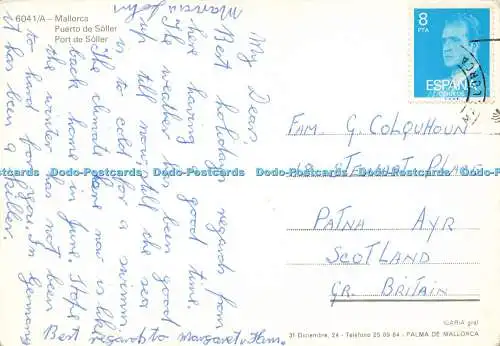 6041/A – Mallorca
Puerto de Sóller
Port de Sóller
My Dear,
Best holiday regards from
here having a good time.
The weather has been good
up till now, still the sea
is to cold for a swimm.
The climate here now is like
back home in June. Hope
the winter has not been
to hard for you. In Germany
it has been a killer.
Best regards to Margaret + Ham.
8
PTA
ESPAÑA
CORREOS
FAM. G. COLQUHOUN
PATNA AYR
SCOTLAND
GR. BRITAIN
Dodo-Postcards Dodo-Postcards Dodo-Postcards Dodo-Postcards Dodo-Postcards
ICARIA graf.
31 Diciembre, 24 - Teléfono 25 09 84 - PALMA DE MALLORCA